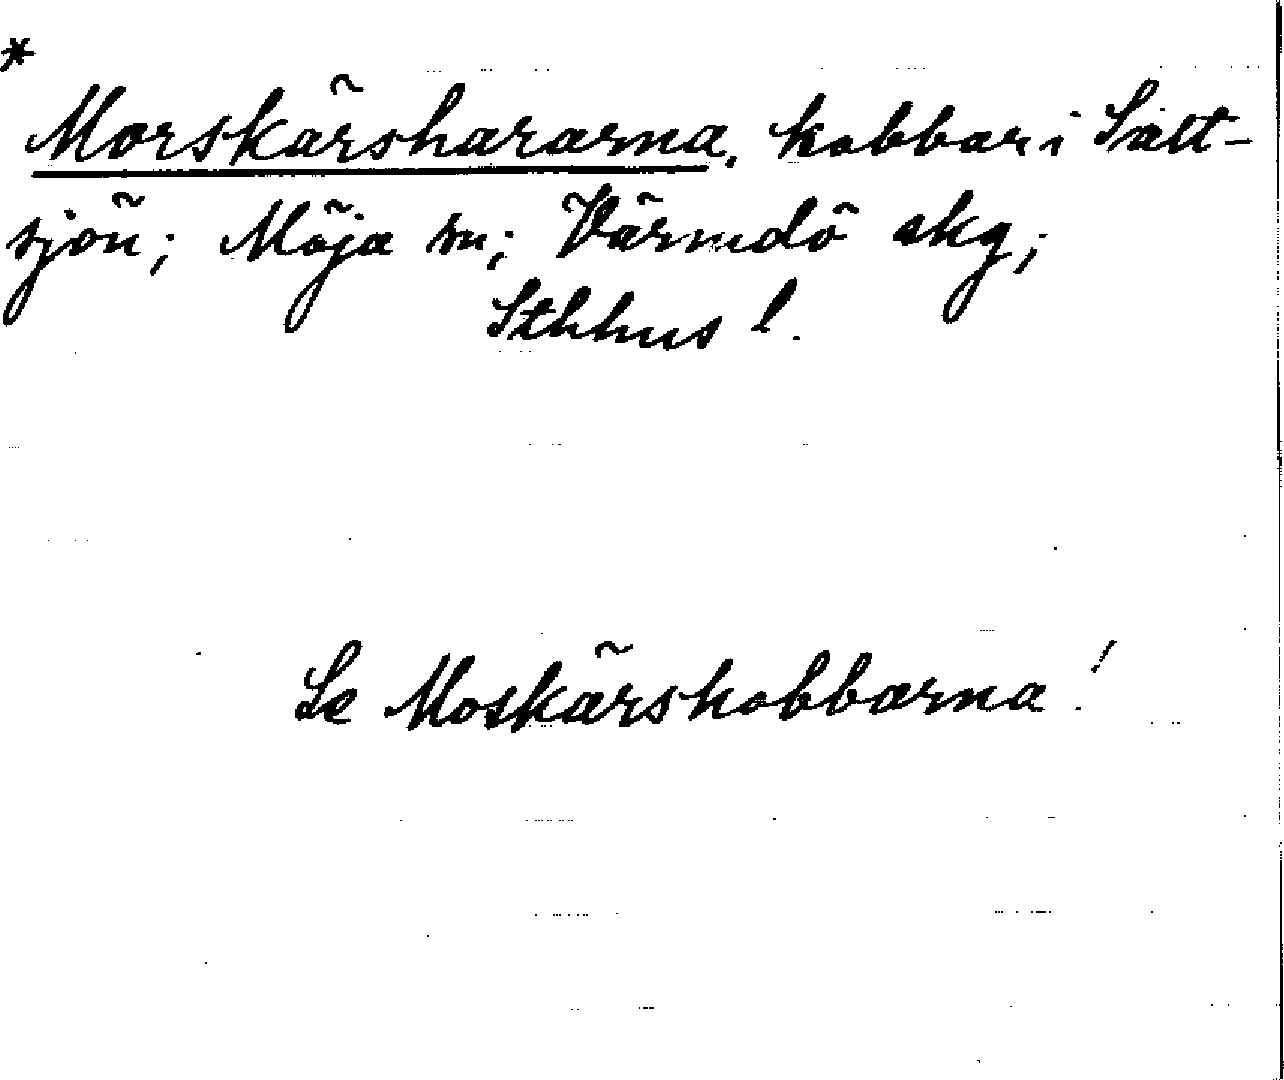 *
Morskärshararna, kobbar i Salt-
sjön; Möja sn; Värmdö skg;
Sthlms l.
Se Moskärskobbarna!